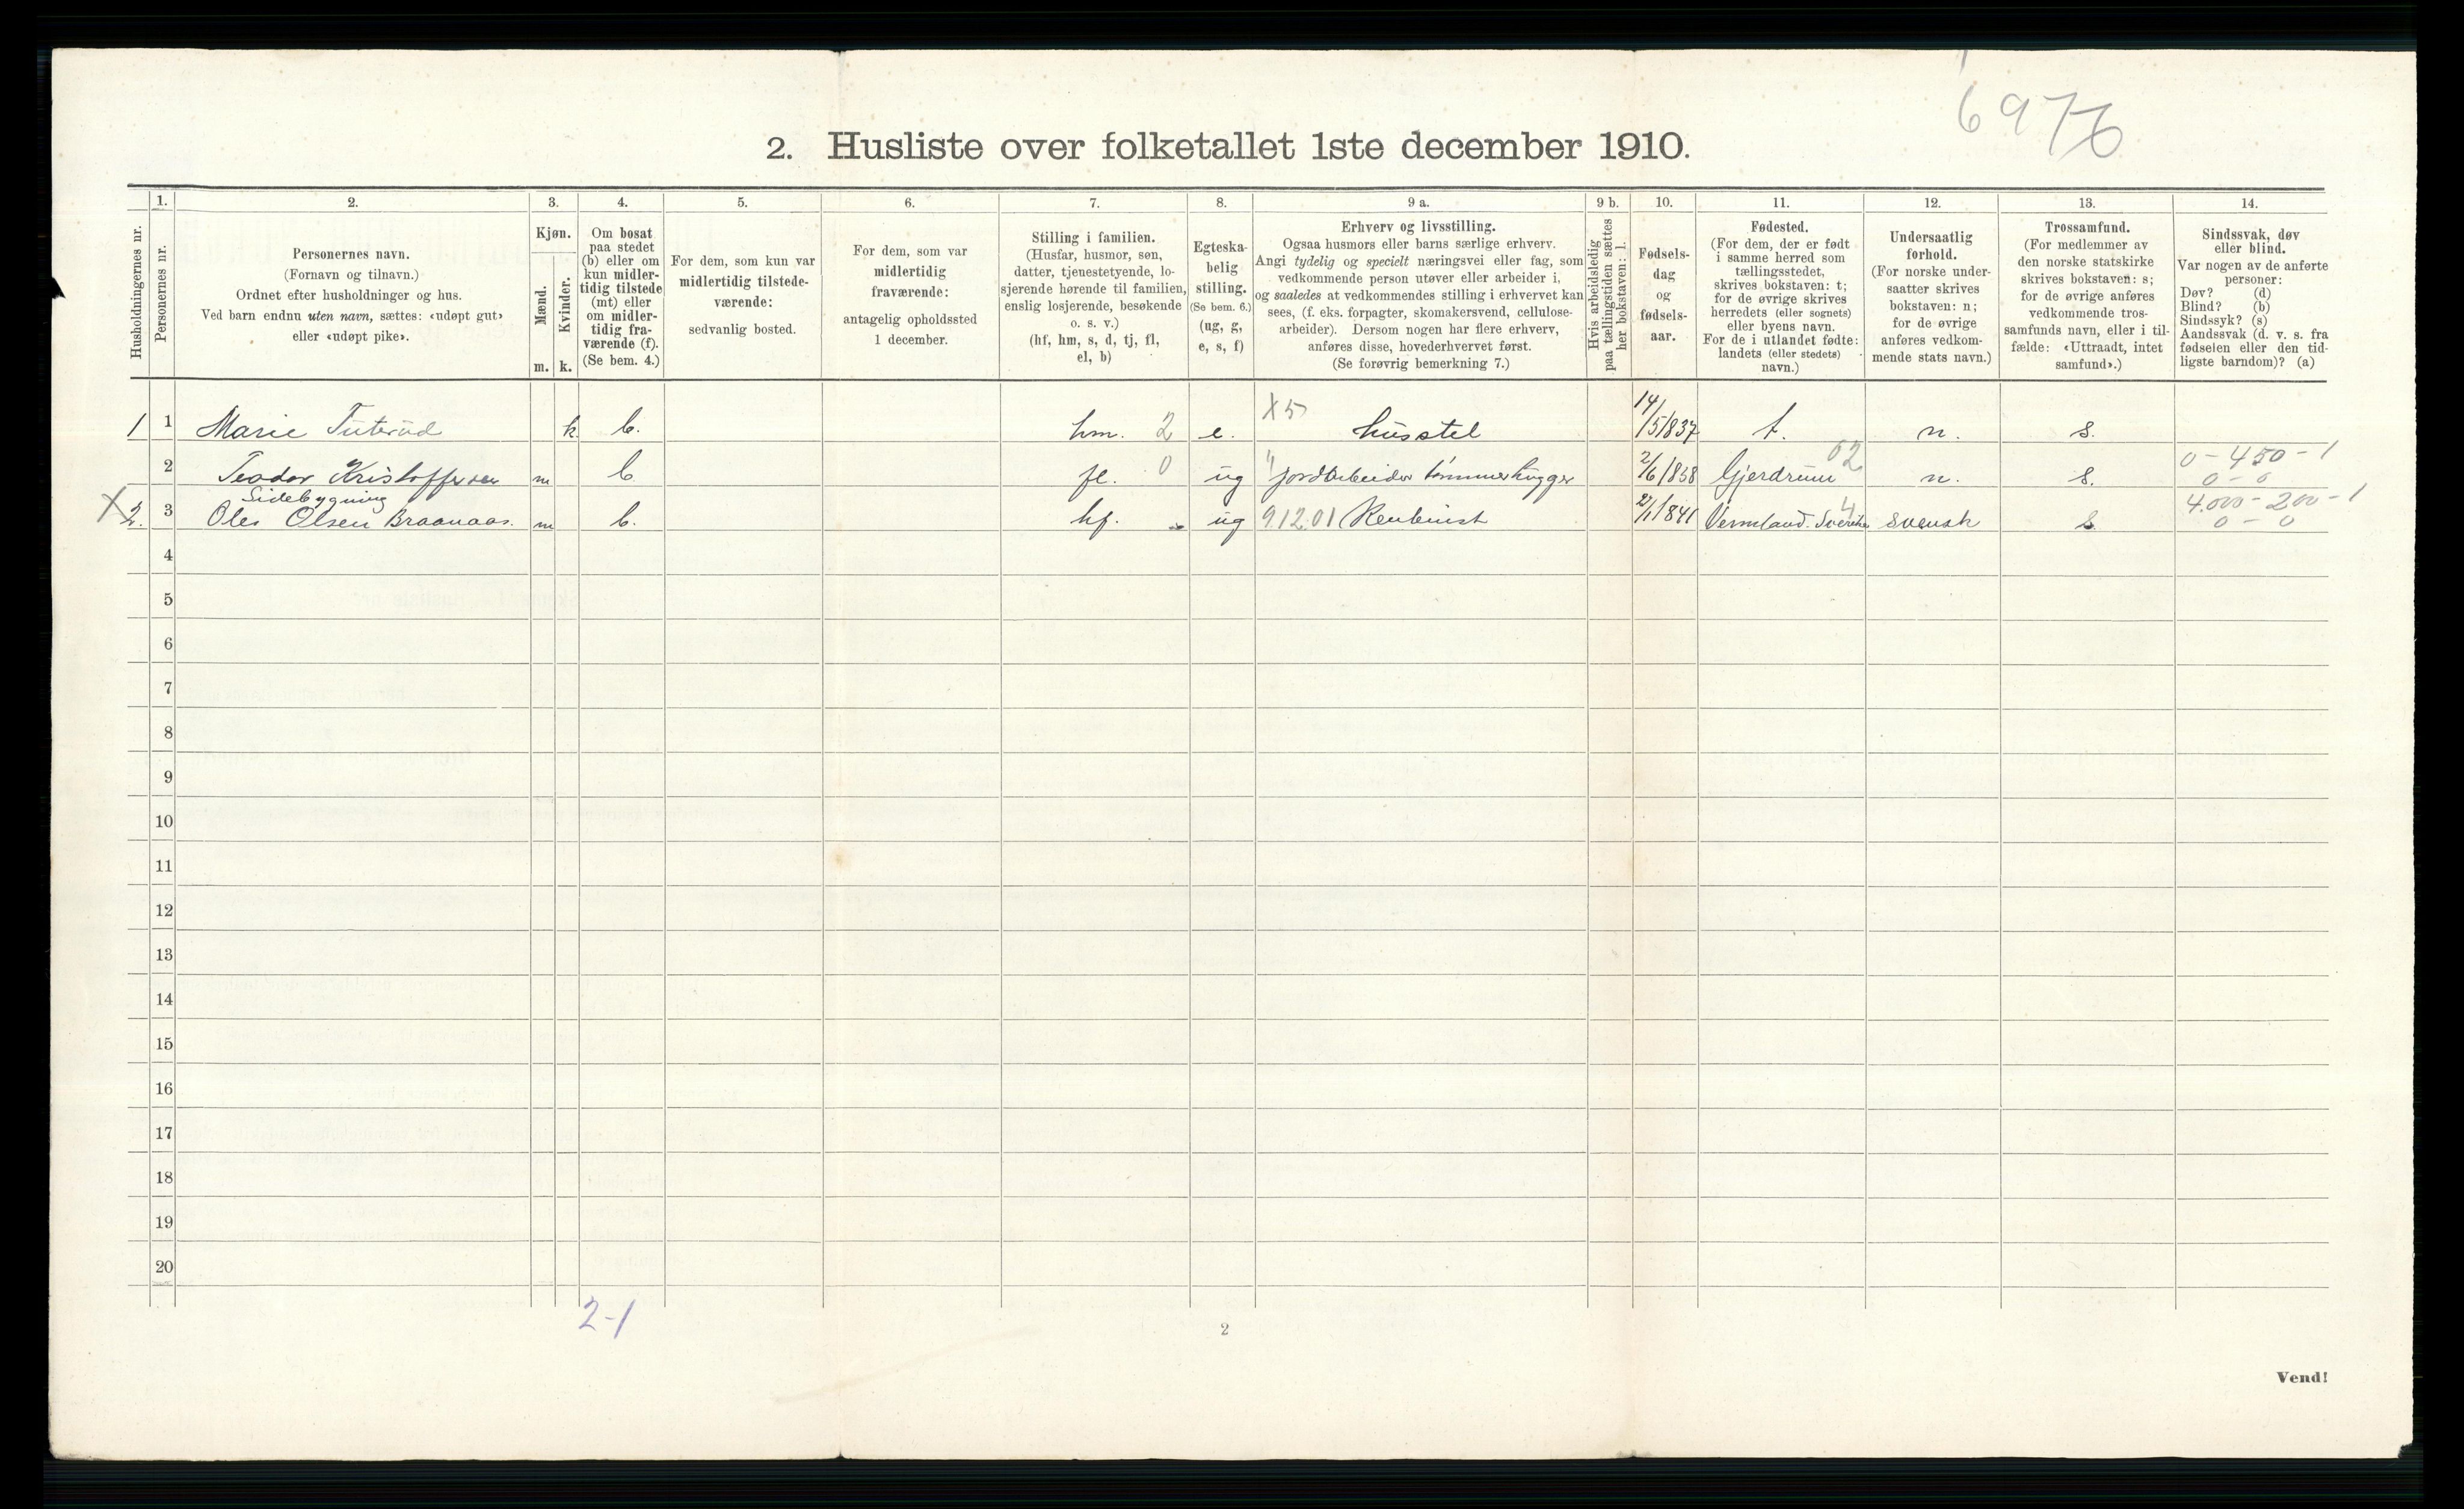 6976
2. Husliste over folketallet 1ste december 1910.
Husholdningernes nr.
1.
Personernes nr.
2.
Personernes navn.
(Fornavn og tilnavn.)
Ordnet efter husholdninger og hus.
Ved barn endnu uten navn, sættes: «udøpt gut»
eller «udøpt pike».
3.
Kjøn.
Mænd.
Kvinder.
m. k.
4.
Om bosat
paa stedet
(b) eller om
kun midler-
tidig tilstede
(mt) eller
om midler-
tidig fra-
værende (f).
(Se bem. 4.)
5.
For dem, som kun var
midlertidig tilstede-
værende:
sedvanlig bosted.
6.
For dem, som var
midlertidig
fraværende:
antagelig opholdssted
1 december.
7.
Stilling i familien.
(Husfar, husmor, søn,
datter, tjenestetyende, lo-
sjerende hørende til familien,
enslig losjerende, besøkende
o. s. v.)
(hf, hm, s, d, tj, fl,
el, b)
8.
Egteska-
belig
stilling.
(Se bem. 6.)
(ug, g,
e, s, f)
9 a.
Erhverv og livsstilling.
Ogsaa husmors eller barns særlige erhverv.
Angi tydelig og specielt næringsvei eller fag, som
vedkommende person utøver eller arbeider i,
og saaledes at vedkommendes stilling i erhvervet kan
sees, (f. eks. forpagter, skomakersvend, cellulose-
arbeider). Dersom nogen har flere erhverv,
anføres disse, hovederhvervet først.
(Se forøvrig bemerkning 7.)
9 b.
Hvis arbeidsledig
paa tællingstiden sættes
her bokstaven: l.
10.
Fødsels-
dag
og
fødsels-
aar.
11.
Fødested.
(For dem, der er født
i samme herred som
tællingsstedet,
skrives bokstaven: t;
for de øvrige skrives
herredets (eller sognets)
eller byens navn.
For de i utlandet fødte:
landets (eller stedets)
navn.)
12.
Undersaatlig
forhold.
(For norske under-
saatter skrives
bokstaven: n;
for de øvrige
anføres vedkom-
mende stats navn.)
13.
Trossamfund.
(For medlemmer av
den norske statskirke
skrives bokstaven: s;
for de øvrige anføres
vedkommende tros-
samfunds navn, eller i til-
fælde: «Uttraadt, intet
samfund».)
14.
Sindssvak, døv
eller blind.
Var nogen av de anførte
personer:
Døv? (d)
Blind? (b)
Sindssyk? (s)
Aandssvak (d. v. s. fra
fødselen eller den tid-
ligste barndom)? (a)
1 1 Marie Tuterud k. b. hm. 2 e. X 5 husstel 14/5 1837 t. n. s.
2 Teodor Kristoffersen m b fl. 0 ug jordarbeider tømmerhugger 2/6 1858 Gjerdrum 02 n. s. 0 - 450 - 1
0 - 0
Sidebygning
X 2. 3 Oles Olsen Braanaas. m b. hf. ug 9.12.01 Rentenist 1841 Vermland. Sverike 4 svensk s. 4.000 - 200 - 1
0 - 0
4
5
6
7
8
9
10
11
12
13
14
15
16
17
18
19
20
2-1
2
Vend!